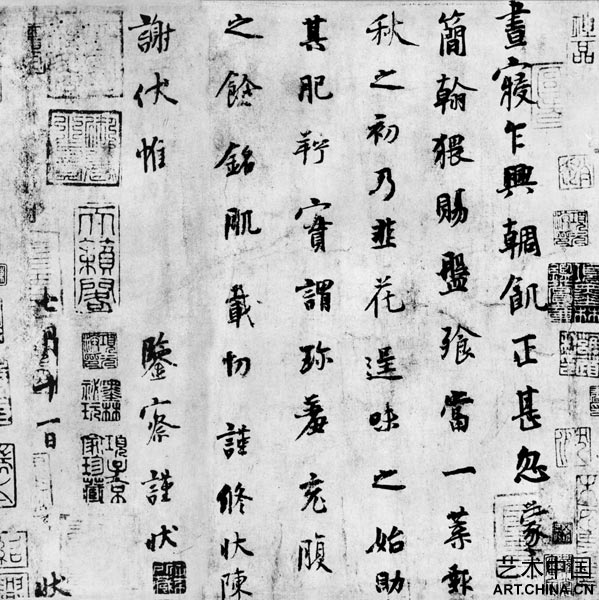 神品
晝寢乍興輖飢正甚忽蒙
簡翰猥賜盤飧當一葉報
秋之初乃韭花逞味之始助
其肥羜實謂珍羞充腹
之餘銘肌載切謹修狀陳
謝伏惟 鑒察謹狀
天籟閣
墨林秘玩
項子京家珍藏
七月十一日 狀
艺术中国
ART.CHINA.CN